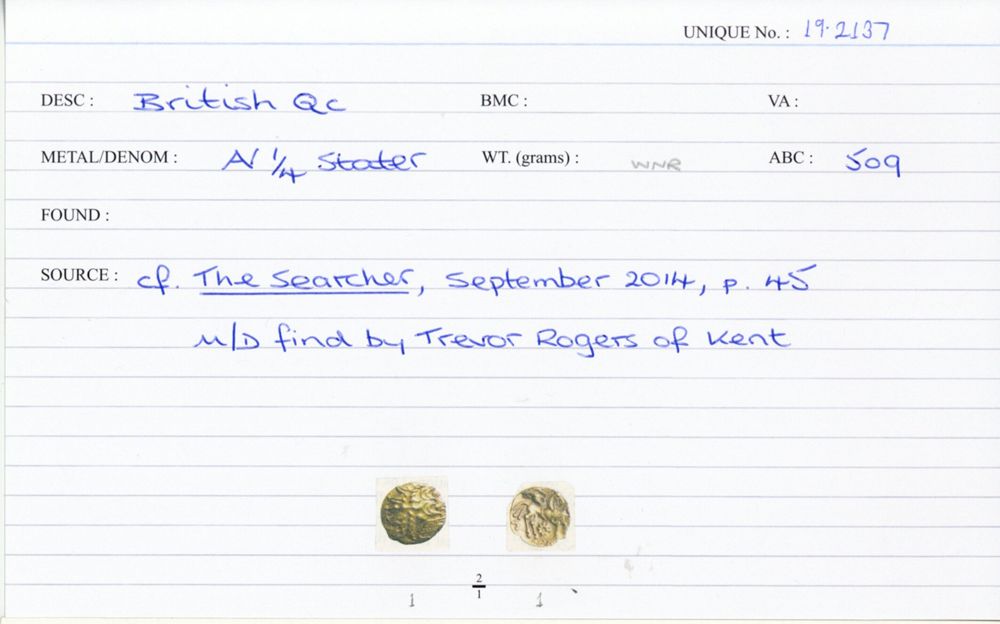 UNIQUE No. : 19.2137
DESC : British Qc BMC : VA :
METAL/DENOM : A/ 1/4 Stater WT. (grams) : WNR ABC : 509
FOUND :
SOURCE : cf. The Searcher, September 2014, p. 45
M/D find by Trevor Rogers of Kent
2/1
1 1